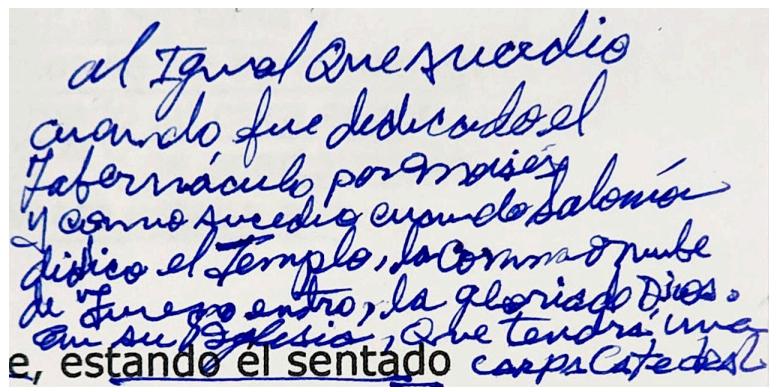 al Igual Que sucedio
cuando fue dedicado el
Tabernáculo por Moisés
y como sucedio cuando Salomón
didico el Templo, la o nube
de Fuego entro, la gloria de Dios.
en su Iglesia, Que tendrá una
e, estando el sentado carpa Catedral